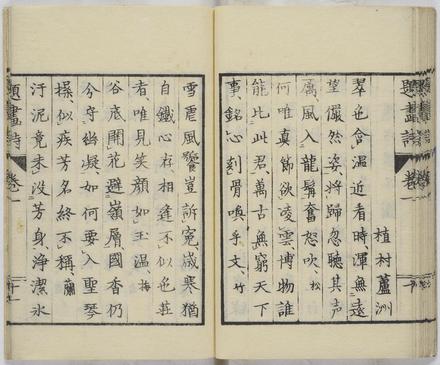 植村蘆洲
翠也含溫近看時渾無遠
望儼然姿將歸忽聽其声
厲風入龍髯奮怒吹松
何唯真節欲凌雲博物誰
能比此君萬古無窮天下
事銘心刻骨喚乎文竹
題畫詩
卷一
雪虐風饕豈訴冤歲寒猶
自鐵心存相逢不似色莊
者唯見笑顏如玉温梅
谷底開花避嶺層國香仍
今守幽凝如何要入聖琴
操似疾芳名終不稱蘭
汙泥竟未没芳身淨潔氷
題畫詩
卷一
十一